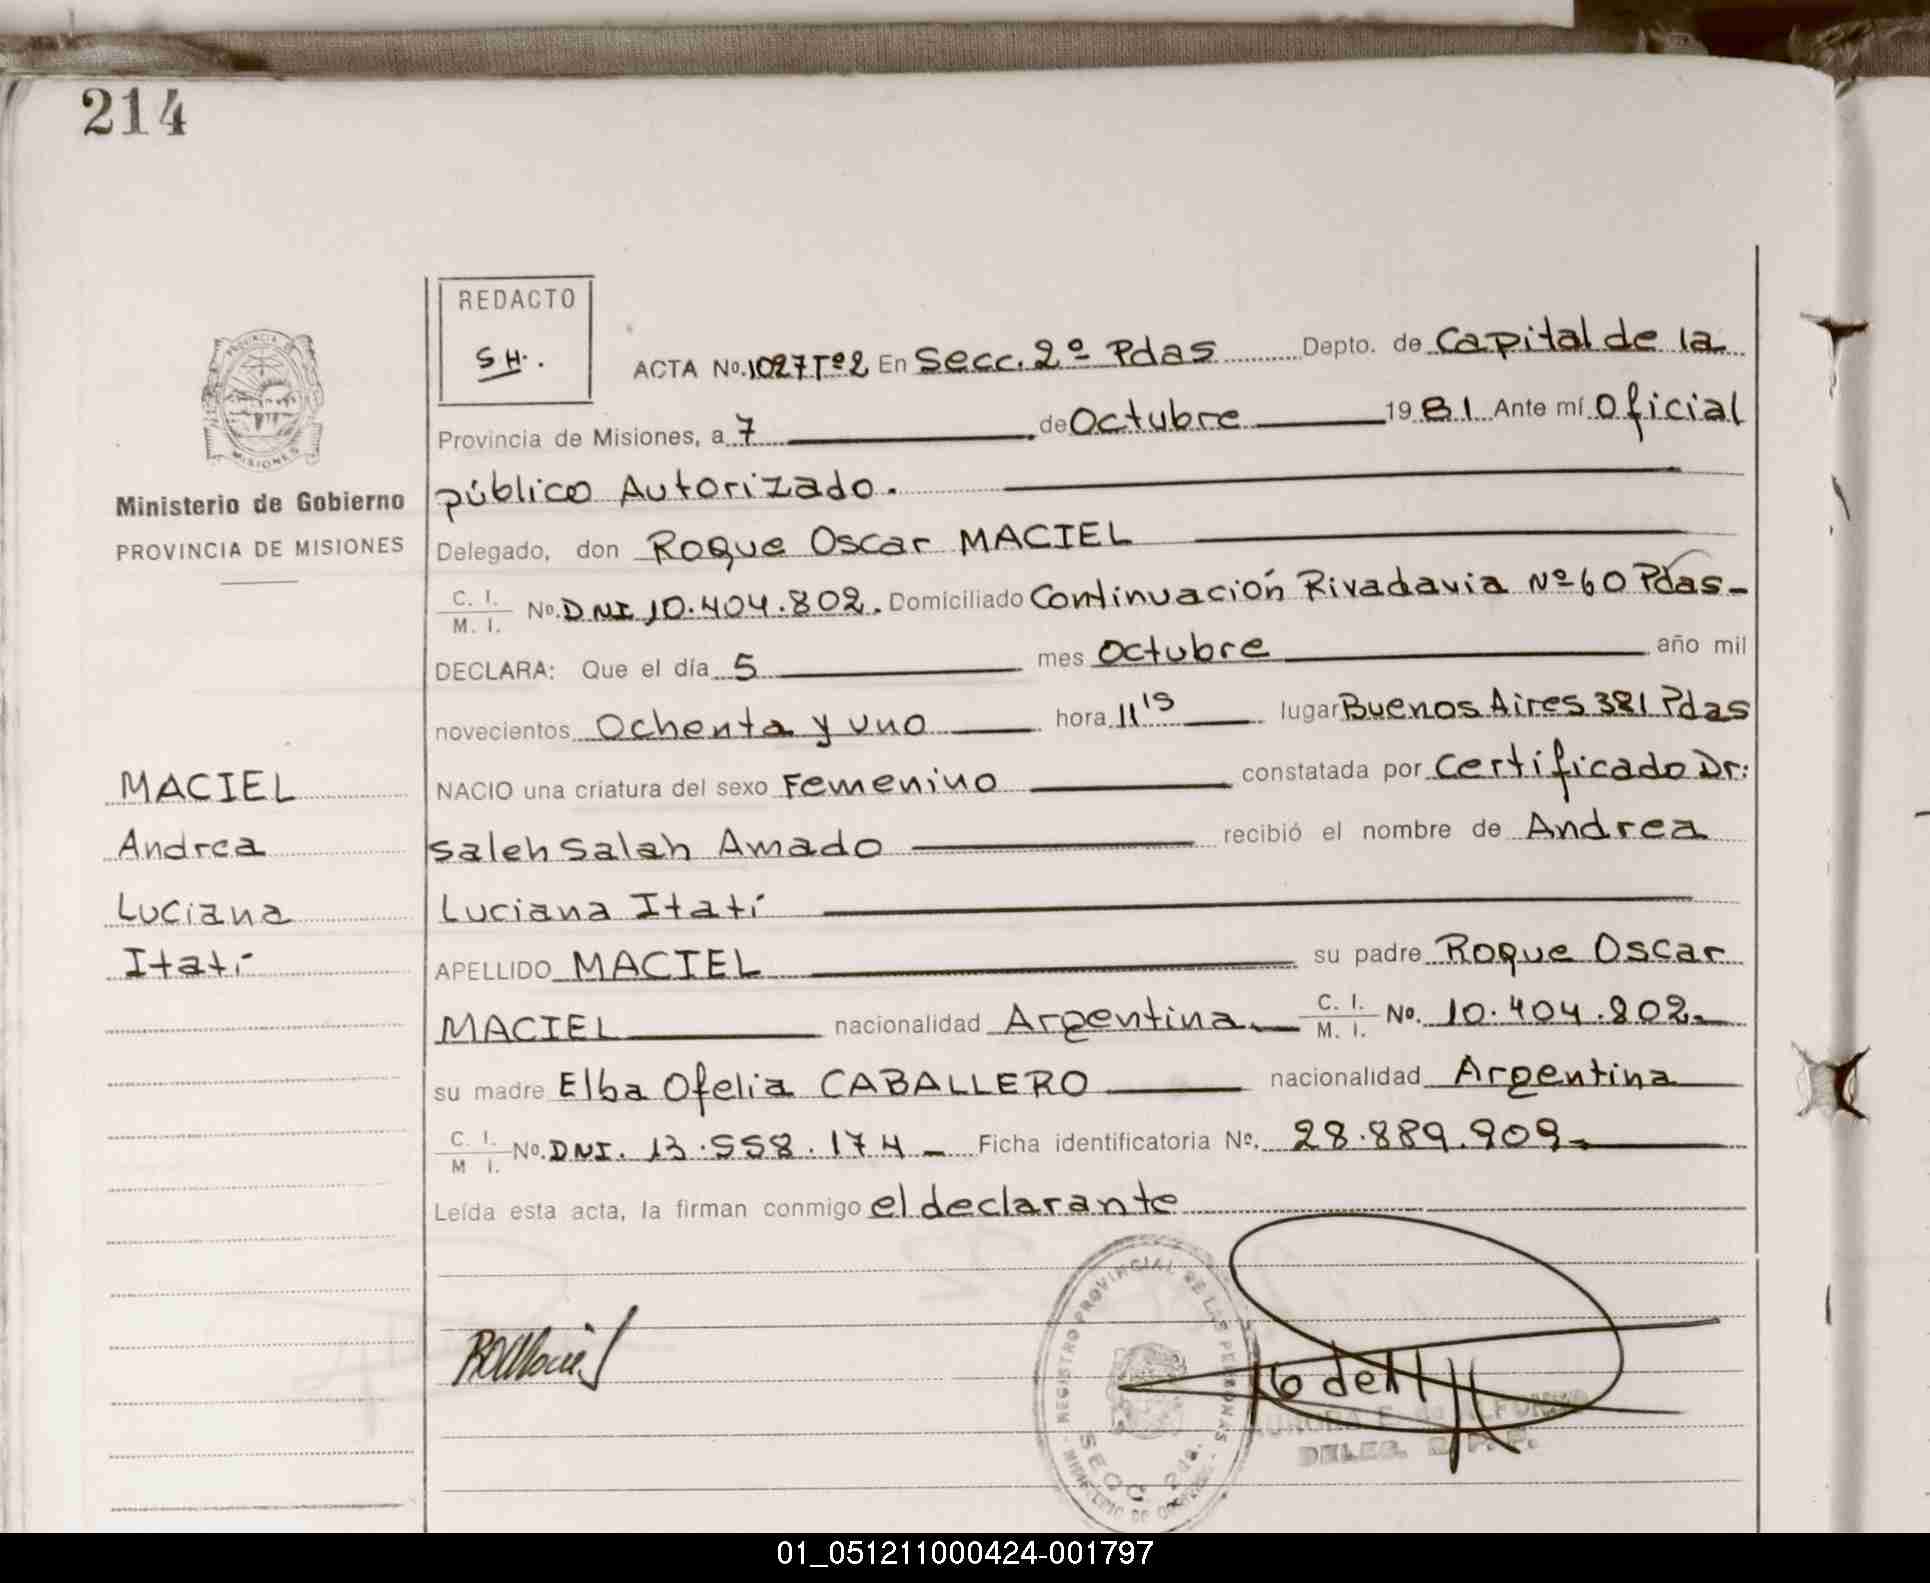 214
REDACTO
S.H.
ACTA No. 1027 Tº2 En Secc. 2º Pdas Depto. de Capital de la
Provincia de Misiones, a 7 de Octubre 1981 Ante mí Oficial
público Autorizado.
Delegado, don Roque Oscar MACIEL
C. I. / M. I. No. DNI 10.404.802. Domiciliado Continuación Rivadavia Nº 60 Pdas-
DECLARA: Que el día 5 mes octubre año mil
novecientos ochenta y uno hora 11 15 lugar Buenos Aires 381 Pdas
NACIO una criatura del sexo Femenino constatada por Certificado Dr:
Saleh Salah Amado recibió el nombre de Andrea
Luciana Itatí
APELLIDO MACIEL su padre Roque Oscar
MACIEL nacionalidad Argentina C. I. / M. I. No. 10.404.802.
su madre Elba Ofelia CABALLERO nacionalidad Argentina
C. I. / M I. No. DNI. 13.558.174 Ficha identificatoria Nº. 28.889.909.
Leída esta acta, la firman conmigo el declarante
PROVINCIA DE
MISIONES
Ministerio de Gobierno
PROVINCIA DE MISIONES
MACIEL
Andrea
Luciana
Itatí
REGISTRO PROVINCIAL DE LAS PERSONAS
SECC. 2da.
DELEG. R. P. P.
01_051211000424-001797